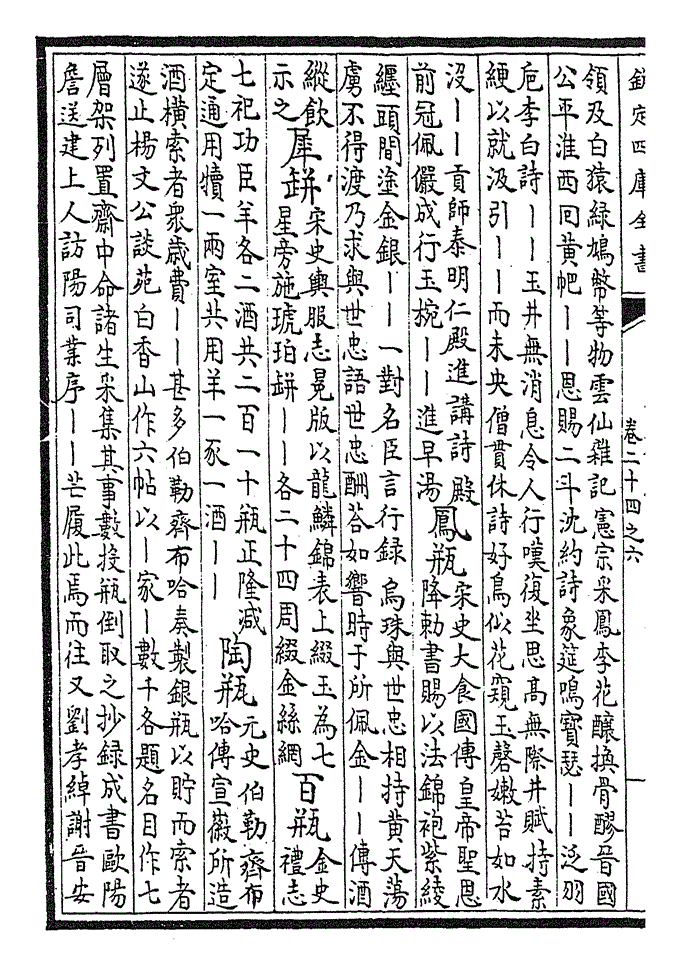 欽定四庫全書
卷二十四之六
領及白猿綠鳩幣等物雲仙雜記憲宗采鳳李花釀換骨醪晉國
公平淮西回黃帊——恩賜二斗沈約詩象筵鳴寶瑟——泛羽
巵李白詩——玉井無消息令人行嘆復坐思高無際井賦持素
綆以就汲引——而未央僧貫休詩好鳥似花窺玉磬嫩苔如水
沒——貢師泰明仁殿進講詩殿
前冠佩儼成行玉椀——進早湯
鳳瓶
宋史大食國傳皇帝聖恩
降勅書賜以法錦袍紫綾
纏頭間塗金銀——一對名臣言行録烏珠與世忠相持黃天蕩
虜不得渡乃求與世忠語世忠酬荅如響時于所佩金——傳酒
縱飲
示之
犀缾
宋史輿服志冕版以龍鱗錦表上綴玉為七
星旁施琥珀缾——各二十四周綴金絲網
百瓶
金史
禮志
七祀功臣羊各二酒共二百一十瓶正隆减
定通用犢一兩室共用羊一豕一酒——
陶瓶
元史伯勒齊布
哈傳宣薇所造
酒橫索者衆歳費——甚多伯勒齊布哈奏製銀瓶以貯而索者
遂止楊文公談苑白香山作六帖以—家—數千各題名目作七
層架列置齋中命諸生采集其事數投瓶倒取之抄録成書歐陽
詹送建上人訪陽司業序——芒履此焉而往又劉孝綽謝晉安